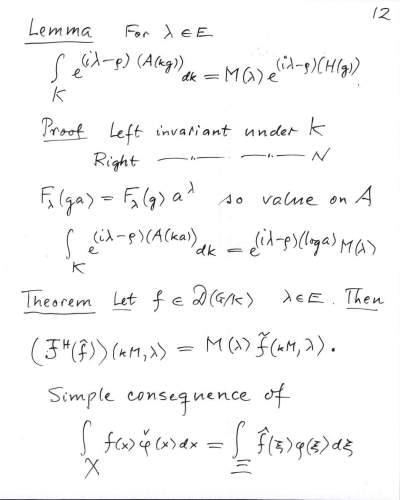 12
Lemma For λ ∈ E
∫_K e^{(iλ-ρ)(A(kg))} dk = M(λ) e^{(iλ-ρ)(H(g))}.
Proof Left invariant under K
Right —〃— —〃— N
F_λ(ga) = F_λ(g) a^λ so value on A
∫_K e^{(iλ-ρ)(A(ka))} dk = e^{(iλ-ρ)(log a)} M(λ)
Theorem Let f ∈ 𝒟(G/K) λ ∈ E. Then
(ℱ^H(f̂))(kM, λ) = M(λ) f̃(kM, λ).
Simple consequence of
∫_X f(x) φ̌(x) dx = ∫_Ξ f̂(ξ) φ(ξ) dξ